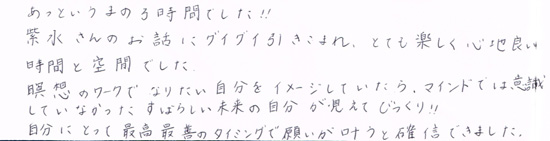 あっというまの3時間でした!!
紫水さんのお話にグイグイ引きこまれ、とても楽しく心地良い
時間と空間でした
瞑想のワークでなりたい自分をイメージしていたら、マインドでは意識
していなかったすばらしい未来の自分が見えてびっくり!!
自分にとって最高最善のタイミングで願いが叶うと確信できました.